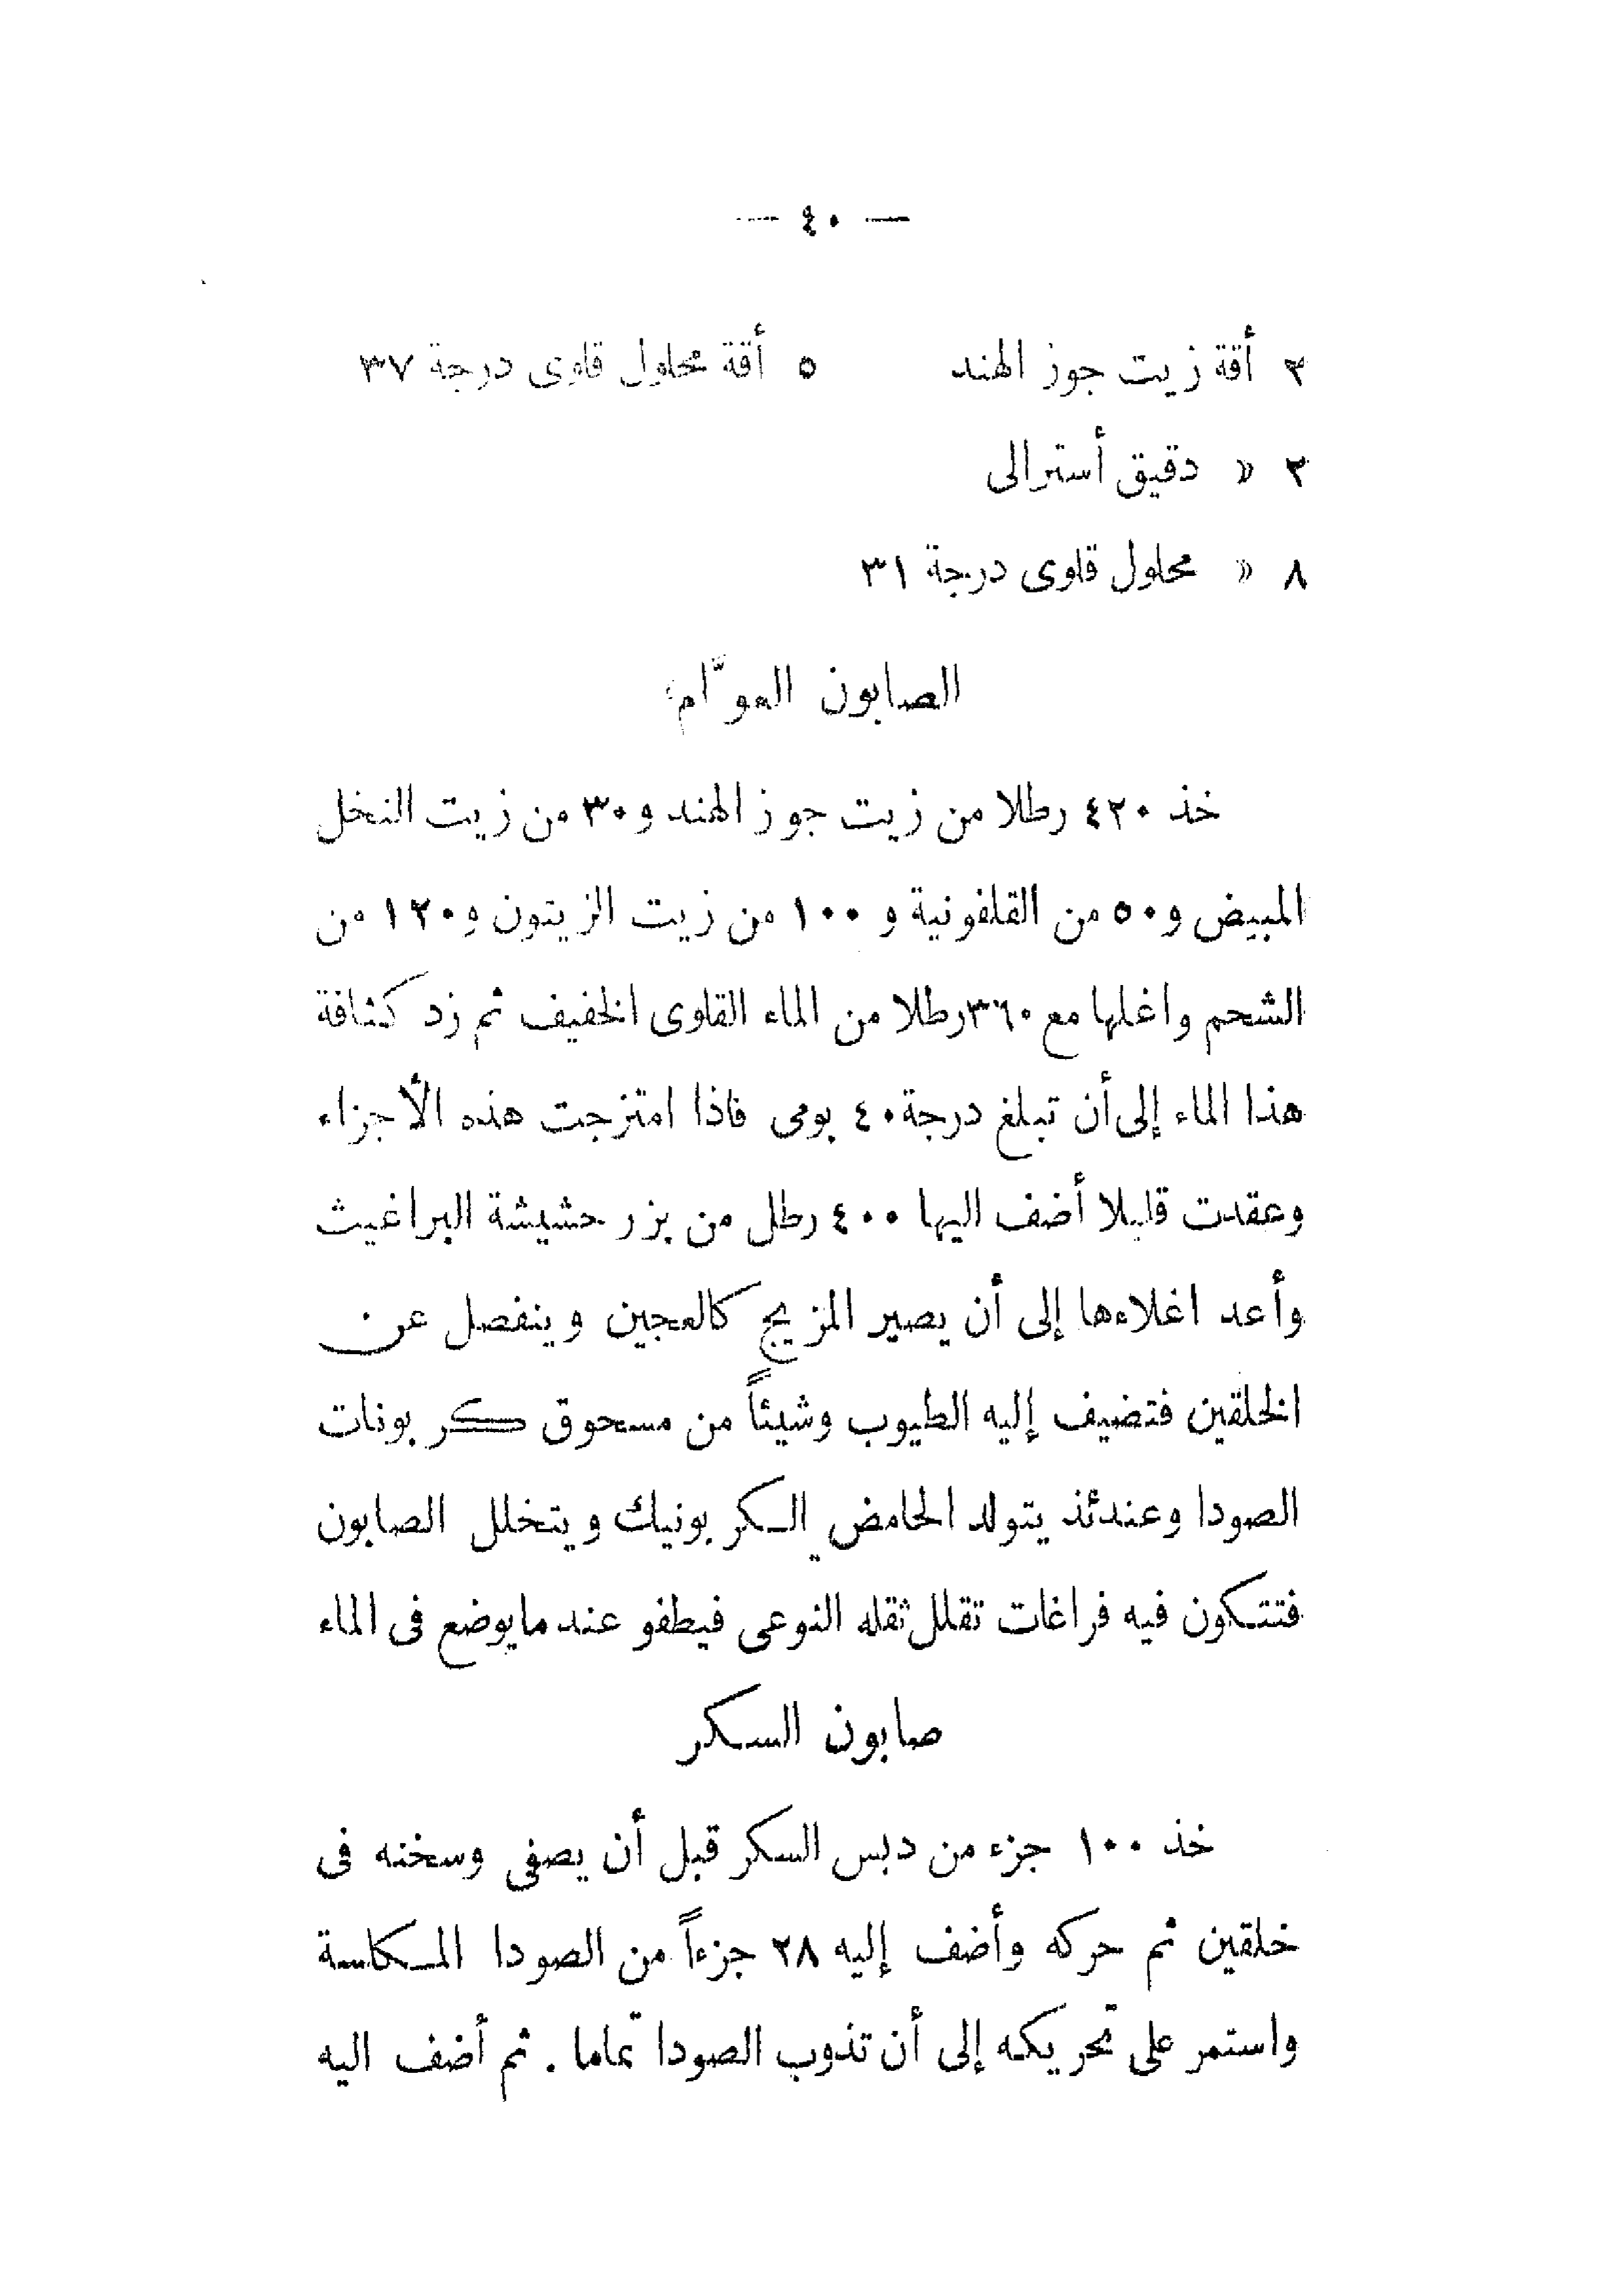 — ٤٠ —
٣ أقة زيت جوز الهند ٥ أقة محلول قلوى درجة ٣٧
٢ » دقيق أسترالى
٨ » محلول قلوى درجة ٣١
الصابون العوّام
خذ ٤٢٠ رطلا من زيت جوز الهند و٣٠ من زيت النخل
المبيض و٥٠ من القلفونية و ١٠٠ من زيت الزيتون و١٢٠ من
الشحم واغلها مع ٣٦٠رطلا من الماء القلوى الخفيف ثم زد كثافة
هذا الماء إلى أن تبلغ درجة ٤٠ بومى فاذا امتزجت هذه الأجزاء
وعقدت قليلا أضف اليها ٤٠٠ رطل من بزر حشيشة البراغيث
وأعد اغلاءها إلى أن يصير المزيج كالعجين وينفصل عن
الخلقين فتضيف إليه الطيوب وشيئاً من مسحوق كربونات
الصودا وعندئذ يتولد الحامض الكربونيك ويتخلل الصابون
فتتكون فيه فراغات تقلل ثقله النوعى فيطفو عند مايوضع فى الماء
صابون السكر
خذ ١٠٠ جزء من دبس السكر قبل أن يصفى وسخنه فى
خلقين ثم حركه وأضف إليه ٢٨ جزءاً من الصودا المكلسة
واستمر على تحريكه إلى أن تذوب الصودا تماما . ثم أضف اليه